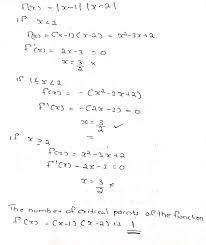 f(x) = |x-1| |x-2|
if x<1
f(x) = (x-1)(x-2) = x²-3x+2
f'(x) = 2x-3 = 0
x = 3/2 ×
if 1≤x<2
f(x) = -(x²-3x+2)
f'(x) = -(2x-3) = 0
x = 3/2 ✓
if x≥2
f(x) = x²-3x+2
f'(x) = 2x-3 = 0
x = 3/2 ×
The number of critical points of the function
f(x) = (x-1)(x-2) is 1